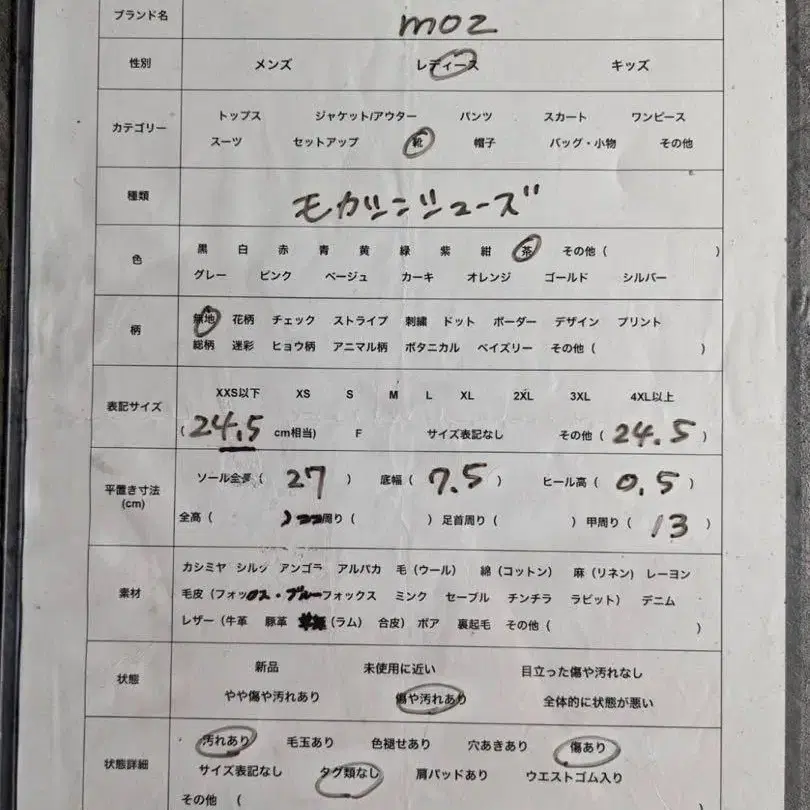 ブランド名 moz
性別 メンズ レディース キッズ
カテゴリー
トップス ジャケット/アウター パンツ スカート ワンピース
スーツ セットアップ 靴 帽子 バッグ・小物 その他
種類 モカシンシューズ
色
黒 白 赤 青 黄 緑 紫 紺 茶 その他 ( )
グレー ピンク ベージュ カーキ オレンジ ゴールド シルバー
柄
無地 花柄 チェック ストライプ 刺繍 ドット ボーダー デザイン プリント
総柄 迷彩 ヒョウ柄 アニマル柄 ボタニカル ペイズリー その他 ( )
表記サイズ
XXS以下 XS S M L XL 2XL 3XL 4XL以上
( 24.5 cm相当) F サイズ表記なし その他 ( 24.5 )
平置き寸法
(cm)
ソール全長 ( 27 ) 底幅 ( 7.5 ) ヒール高 ( 0.5 )
全高 ( ) 周り ( ) 足首周り ( ) 甲周り ( 13 )
素材
カシミヤ シルク アンゴラ アルパカ 毛 (ウール) 綿 (コットン) 麻 (リネン) レーヨン
毛皮 (フォックス・ブルーフォックス ミンク セーブル チンチラ ラビット) デニム
レザー (牛革 豚革 (ラム) 合皮) ボア 裏起毛 その他 ( )
状態
新品 未使用に近い 目立った傷や汚れなし
やや傷や汚れあり 傷や汚れあり 全体的に状態が悪い
状態詳細
汚れあり 毛玉あり 色褪せあり 穴あきあり 傷あり
サイズ表記なし タグ類なし 肩パッドあり ウエストゴム入り
その他 (